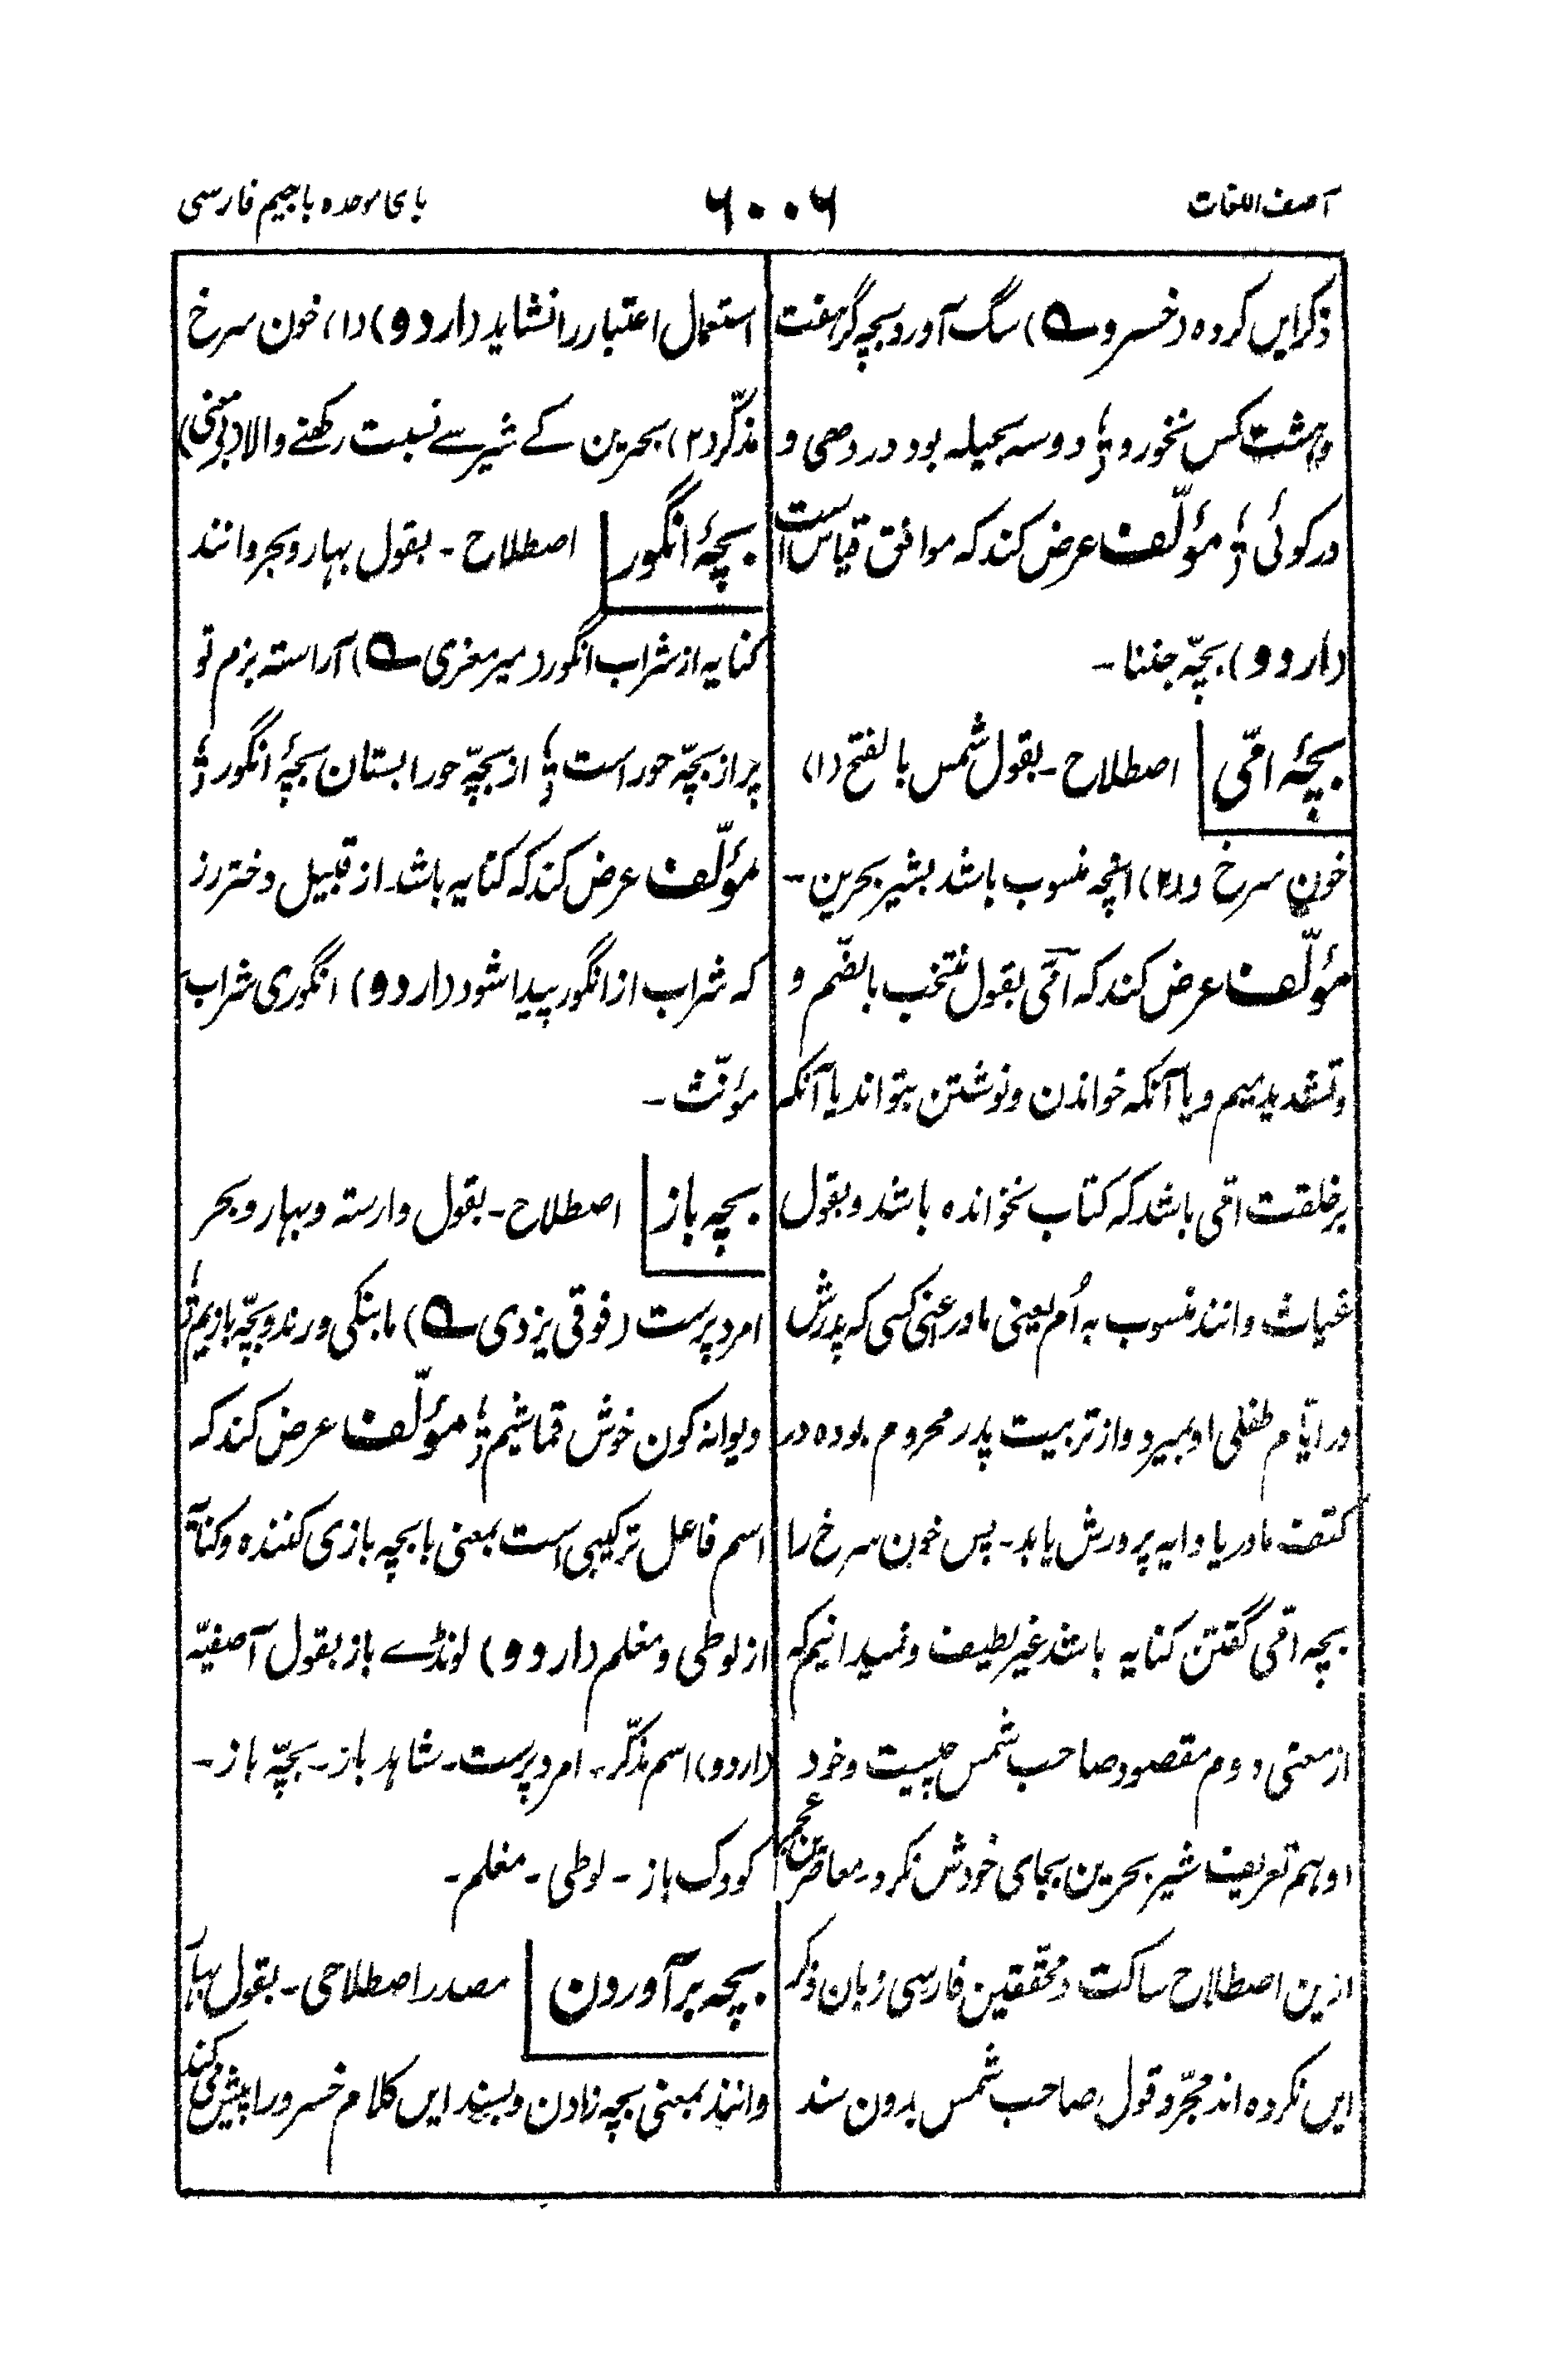 آصف اللغات
۶۰۰۶
بای موحده با جیم فارسی
ذکر این کرده (خسرو ؎) سگ آورد بچه گر هفت
و هشت کس نخورد ؛ دو سه بحیله بود در دهی و
در کوئی ؛ مؤلّف عرض کند که موافق قیاس است
(اردو) بچّہ جننا ۔
بچۂ امّی | اصطلاح ۔ بقول شمس بالفتح (۱)
خون سرخ و (۲) آنچه منسوب باشد بشیر بحرین ۔
مؤلّف عرض کند که اُمّی بقول منتخب بالضّم و
و تشدید میم و یا آنکه خواندن و نوشتن نتواند یا آنکه
بر خلقت امّی باشد که کتاب نخوانده باشد و بقول
غیاث و انند منسوب به اُم یعنی مادر یعنی کسی که پدرش
در ایّام طفلی او بمیرد و از تربیت پدر محروم بوده در
کنف مادر یا دایه پرورش یابد ۔ پس خون سرخ را
بچه امّی گفتن کنایه باشد غیر لطیف و نمیدانیم که
از معنی دوم مقصود صاحب شمس چیست و خود
او هم تعریف شیر بحرین بجای خودش نکرد ۔ معاصرین عجم
ازین اصطلاح ساکت و محققین فارسی زبان ذکر
این نکرده اند مجرّد قول صاحب شمس بدون سند
استعمال اعتبار را نشاید (اردو) (۱) خون سرخ
مذکّر (۲) بحرین کے شیر سے نسبت رکھنے والا (بی معنی)
بچۂ انگور | اصطلاح ۔ بقول بہار و بحر و انند
کنایه از شراب انگور (میر معزی ؎) آراسته بزم تو
پر از بچّه حور است ؛ از بچّه حورا بستان بچۂ انگور ؛
مؤلّف عرض کند که کنایه باشد از قبیل دختر رز
که شراب از انگور پیدا شود (اردو) انگوری شراب
مؤنّث ۔
بچه باز | اصطلاح ۔ بقول وارسته و بہار و بحر
امرد پرست (فوقی یزدی ؎) ما بنگی و رند و بچّه بازیم ؛
دیوانه کون خوش قماشیم ؛ مؤلّف عرض کند که
اسم فاعل ترکیبی است بمعنی با بچه بازی کننده و کنایۃً
از لوطی و مغلم (اردو) لونڈے باز بقول آصفیّہ
(اردو) اسم مذکّر ۔ امرد پرست ۔ شاہد باز ۔ بچّہ باز ۔
کودک باز ۔ لوطی ۔ مغلم ۔
بچه بر آوردن | مصدر اصطلاحی ۔ بقول بہار
و انند بمعنی بچه زادن و بسند این کلام خسرو را پیش می کند